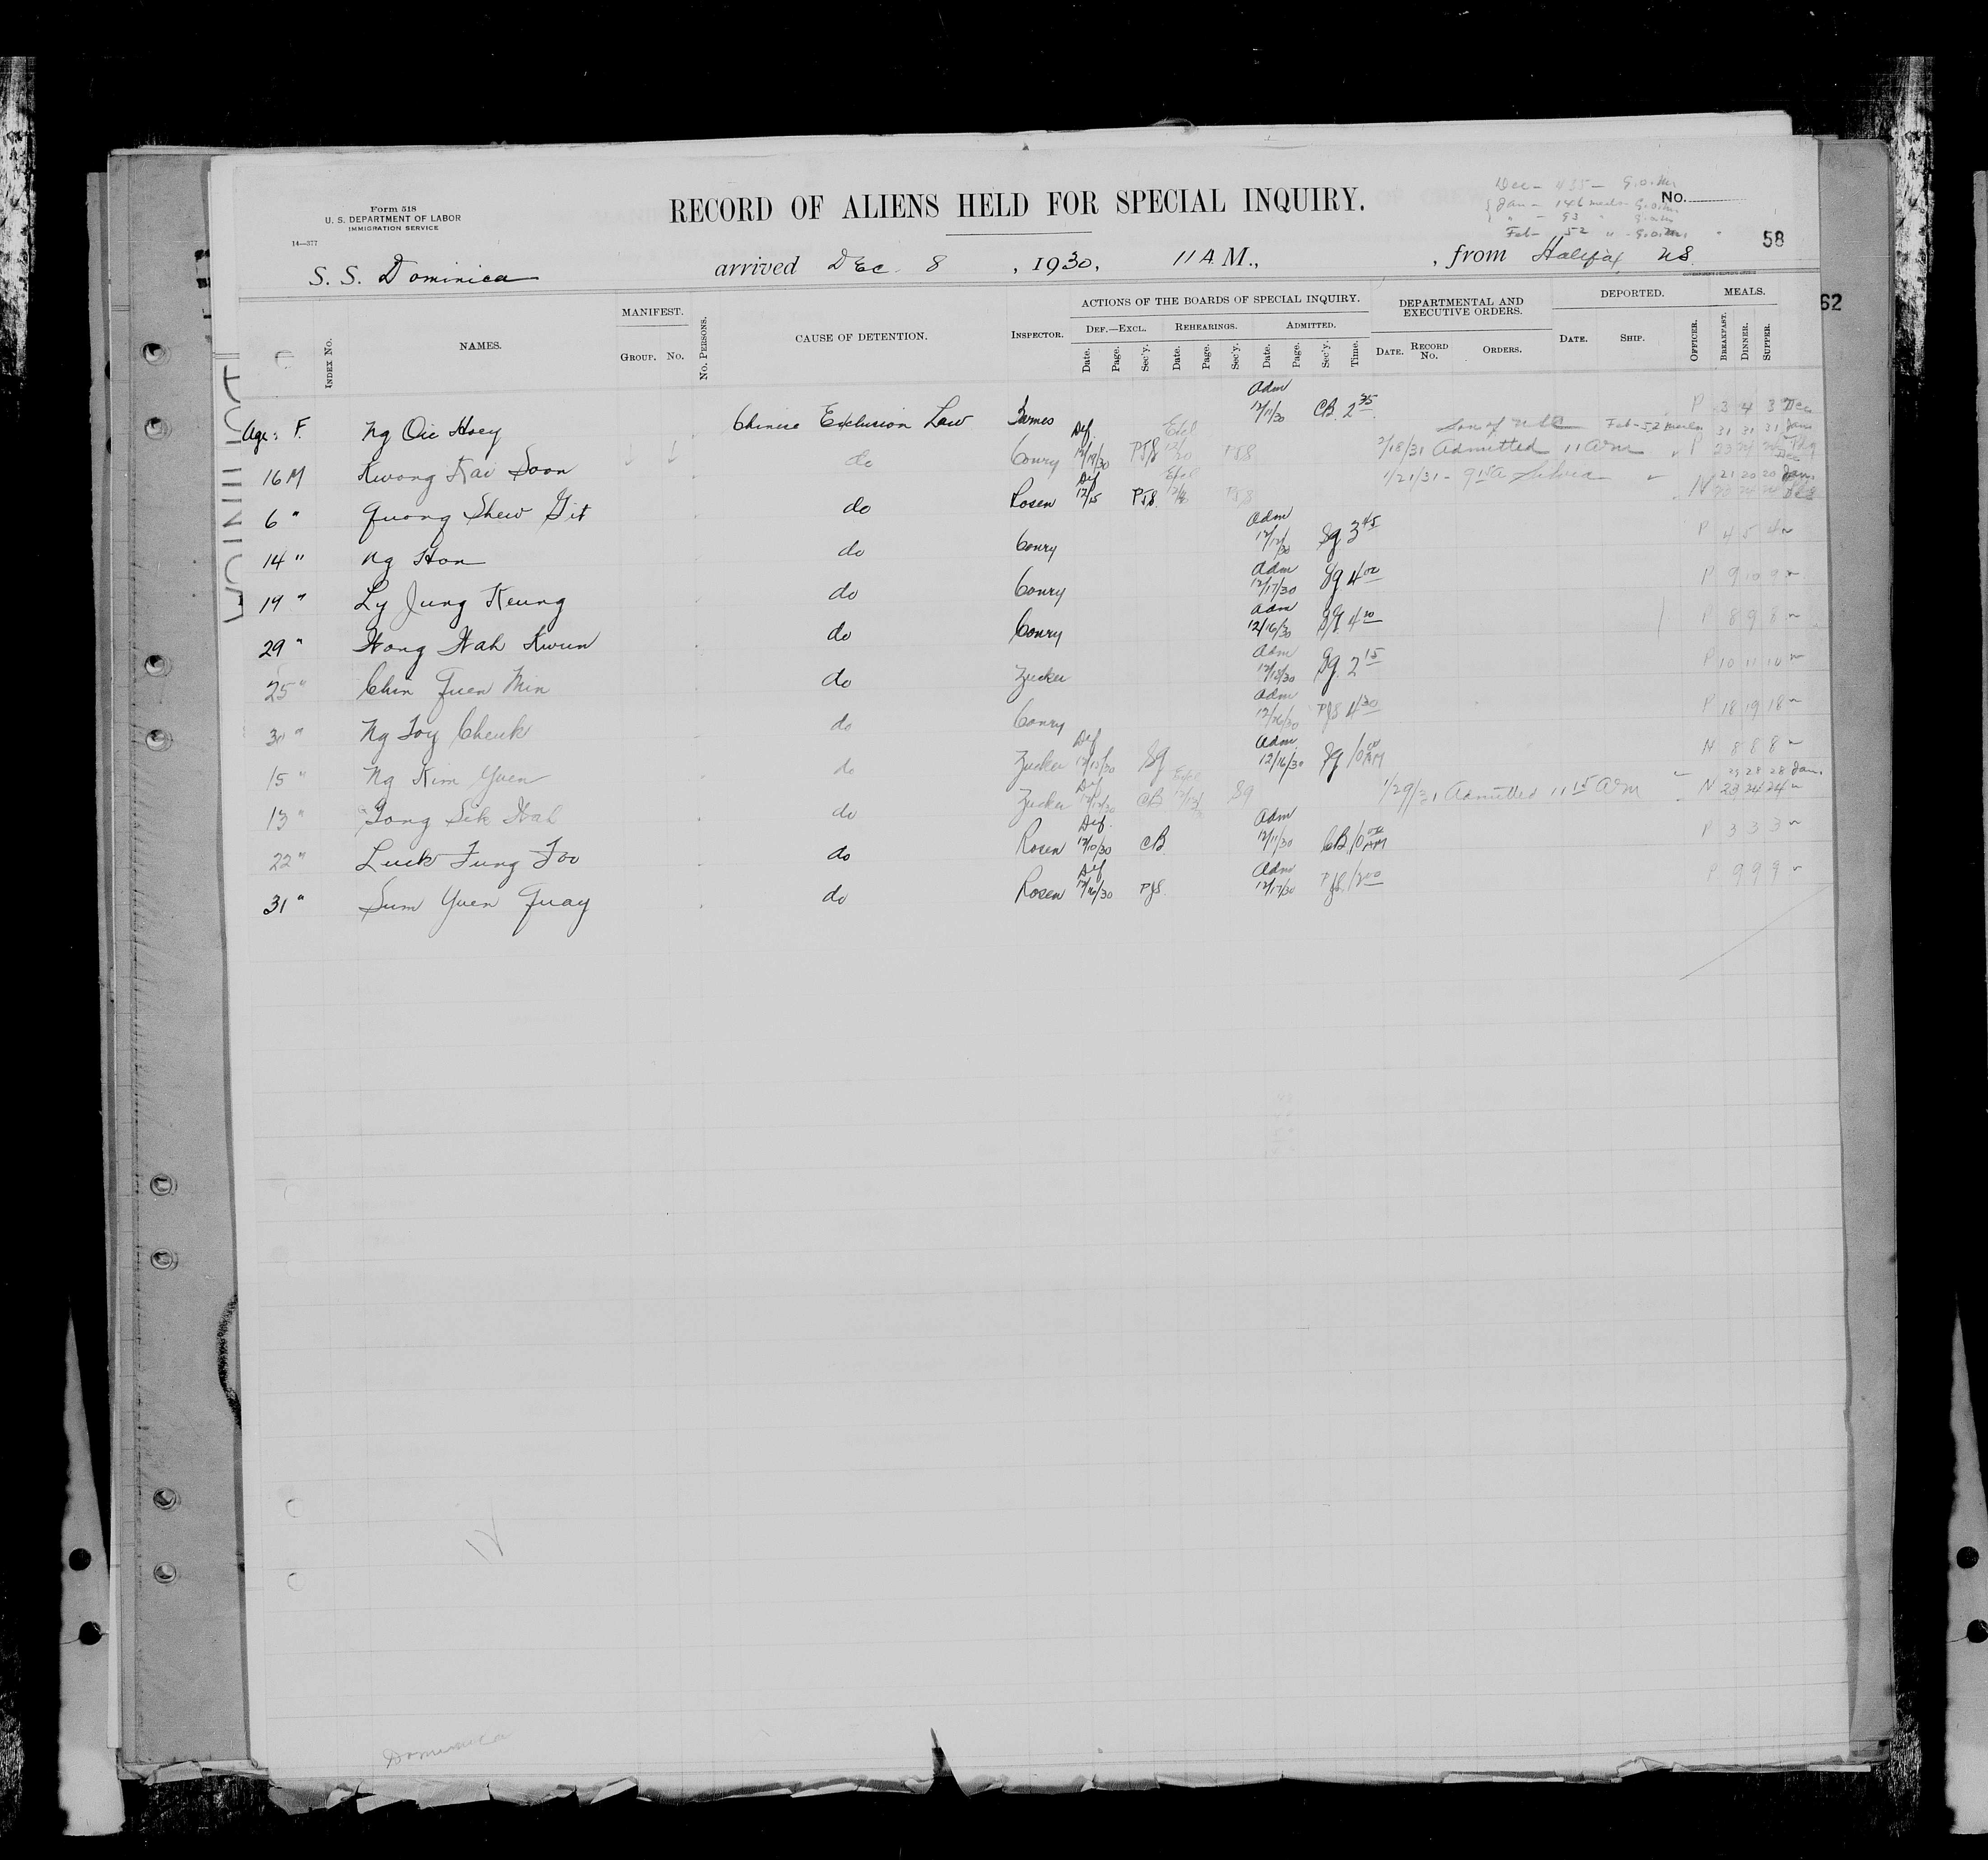 Form 518
U. S. DEPARTMENT OF LABOR
IMMIGRATION SERVICE
14—377
RECORD OF ALIENS HELD FOR SPECIAL INQUIRY.
Dec - 435 - G.O.M.
Jan - 146 meals G.O.M.
" - 93 "
Feb - 52 " - G.O.M.
No.
58
S. S. Dominica arrived Dec. 8, 1930, 11 A.M., from Halifax, N.S.
62
INDEX No. NAMES. MANIFEST. GROUP. No. No. PERSONS. CAUSE OF DETENTION. INSPECTOR. ACTIONS OF THE BOARDS OF SPECIAL INQUIRY. DEF.—EXCL. Date. Page. Sec'y. REHEARINGS. Date. Page. Sec'y. ADMITTED. Date. Page. Sec'y. Time. DEPARTMENTAL AND EXECUTIVE ORDERS. DATE. RECORD No. ORDERS. DEPORTED. DATE. SHIP. OFFICER. MEALS. BREAKFAST. DINNER. SUPPER.
Age: F. Ng Oie Hoey Chinese Exclusion Law James Adm 12/11/30 CB. 2 35 P 3 4 3 Dec
Son of Feb - 52 meals 31 31 31 Jan
16 M Kwong Kai Soon do Conry Def 12/19/30 PJS Excl 12/20 PJS 2/18/31 Admitted 11 am P 23 24 24 Dec
21 20 20 Jan.
6 " Quong Shew Git do Rosen Def 12/15 PJS Excl PJS 1/21/31 - 9 15 a N Dec
14 " Ng Hon do Conry Adm 12/12/30 Sg 3 45 P 4 5 4 "
19 " Ly Jung Keung do Conry Adm 12/17/30 Sg 4 00 P 9 10 9 "
29 " Wong Wah Kwun do Conry Adm 12/16/30 Sg. 4 P 8 9 8 "
25 " Chin Quen Min do Zucker Adm 12/18/30 Sg. 2 15 P 10 11 10 "
30 " Ng Toy Cheuk do Conry Adm 12/26/30 PJS 4 30 P 18 19 18 "
15 " Ng Kim Yuen do Zucker Def 12/15/30 Sg Adm. 12/16/30 Sg 10 00 AM N 8 8 8 "
28 28 Jan.
13 " Tong Sik Wah do Zucker Def 12/12/30 CB Excl Sg 1/29/31 Admitted 11 15 am N 23 24 24 "
22 " Luck Fung Foo do Rosen Def. 12/10/30 CB Adm 12/11/30 CB 10 AM P 3 3 3 "
31 " Sum Yuen Quay do Rosen Def 12/16/30 PJS. Adm 12/17/30 PJS. 12 00 P 9 9 9 "
Dominica